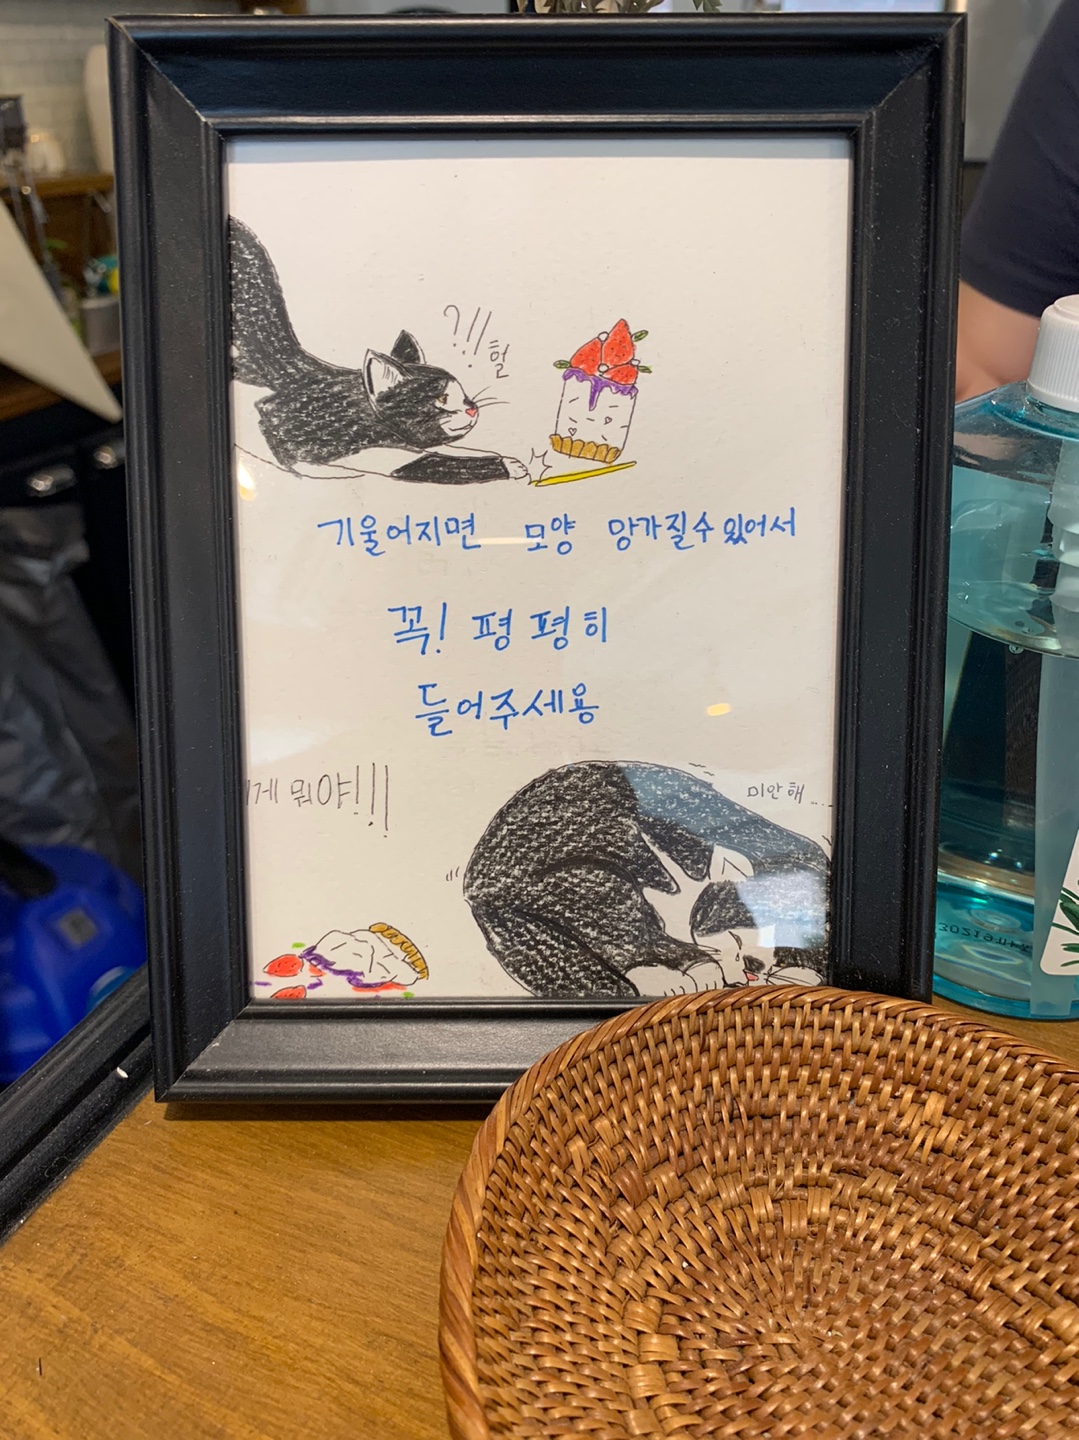 ?!! 헐
기울어지면 모양 망가질수 있어서
꼭! 평평히
들어주세용
이게 뭐야!!!
미안해...